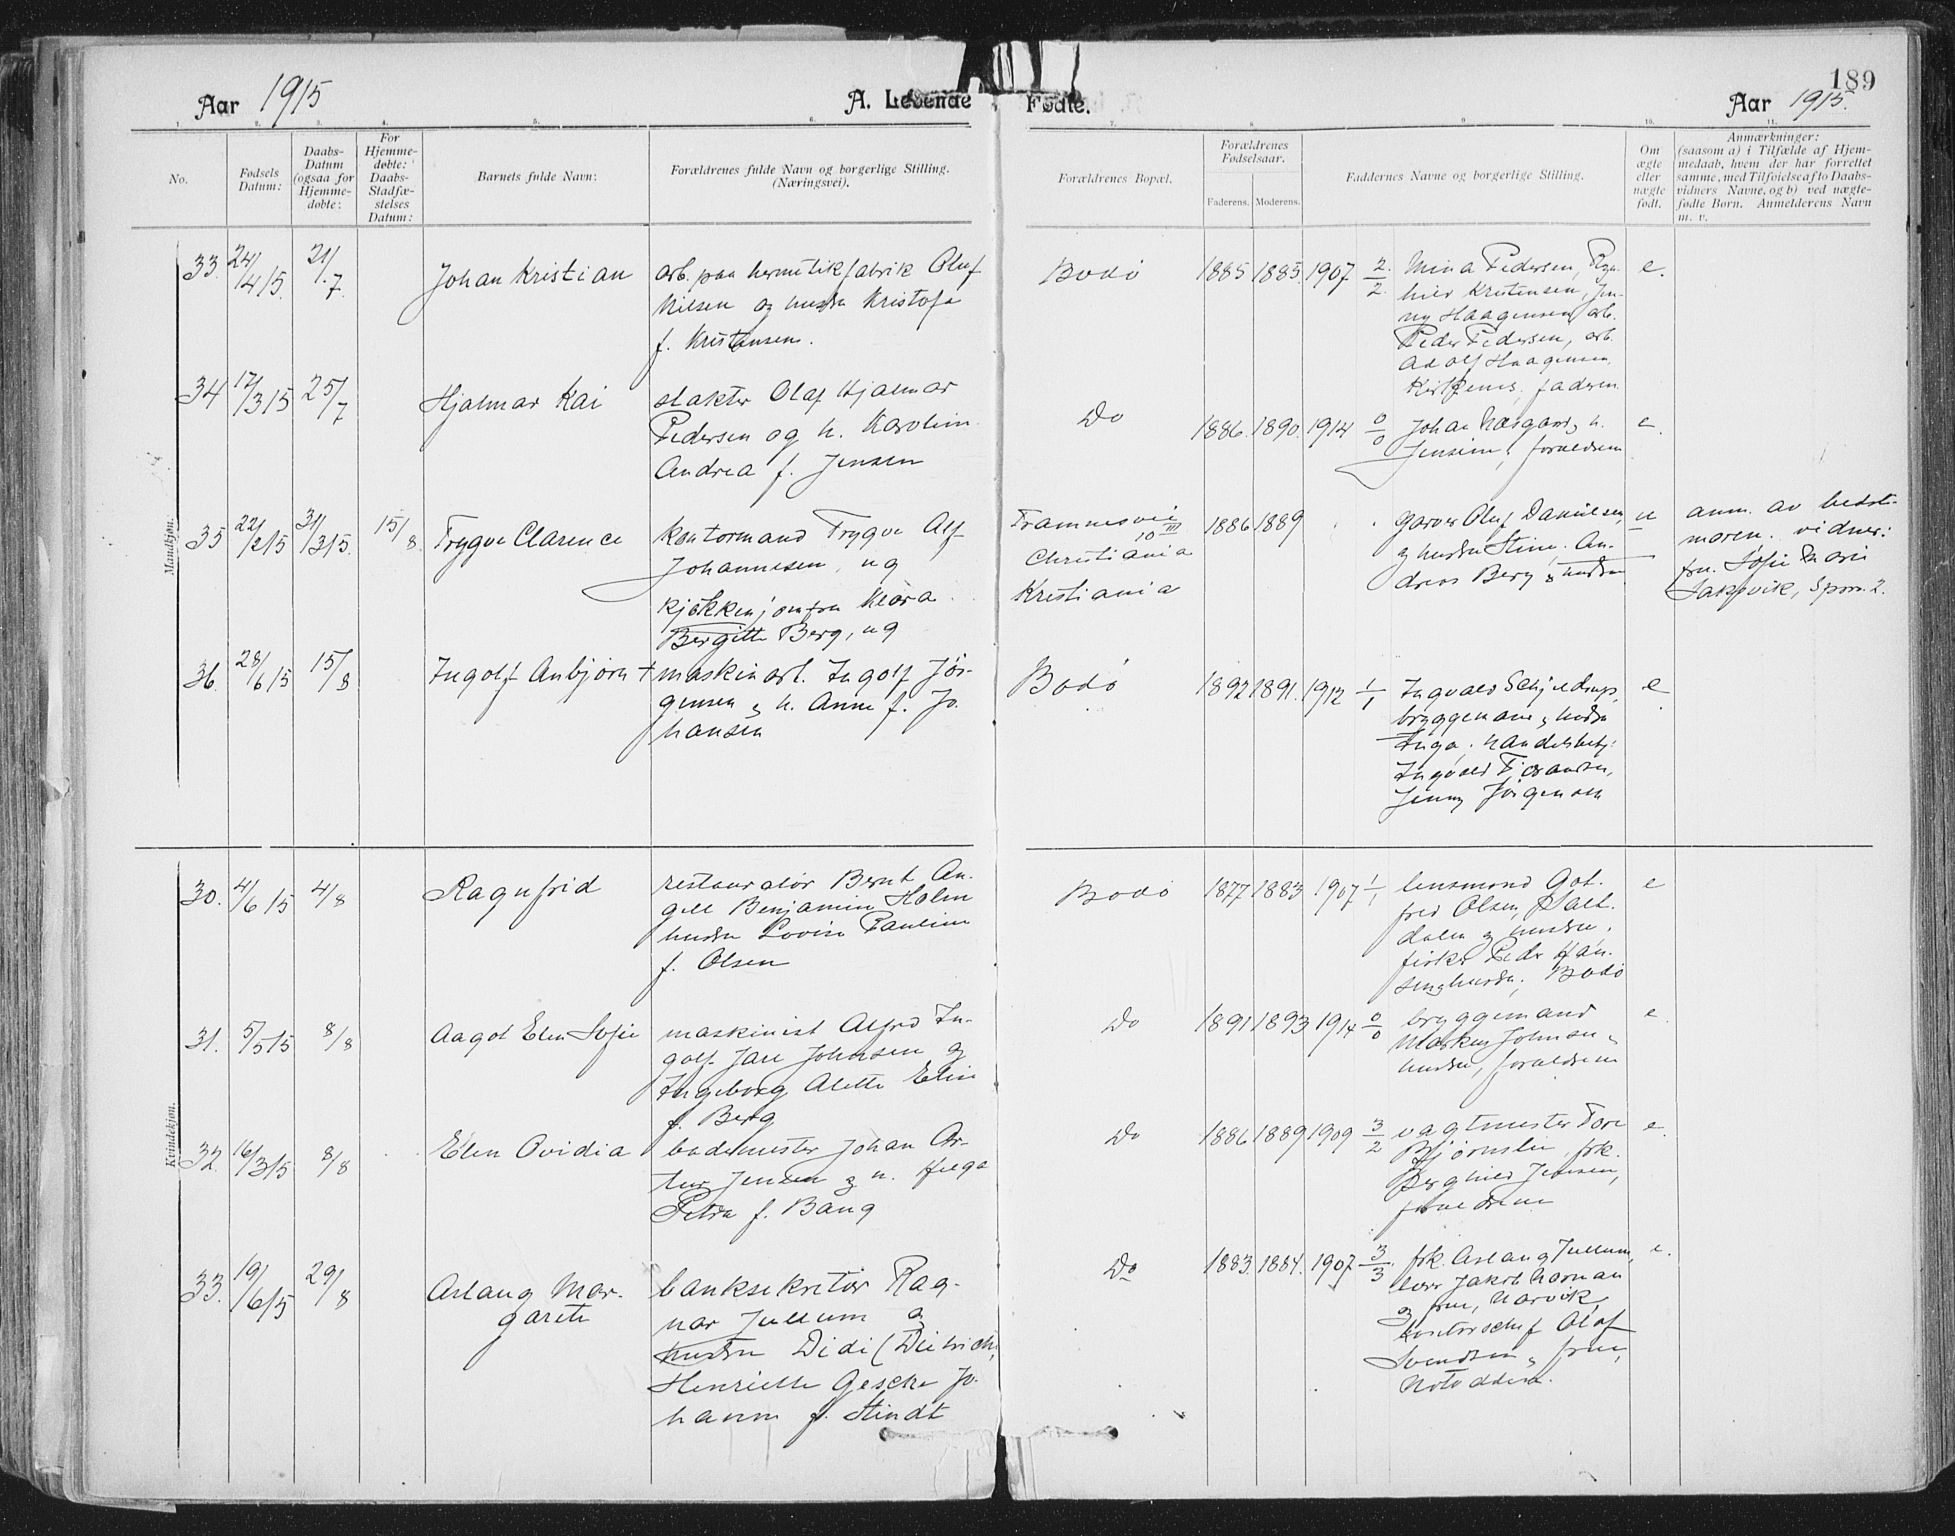 189
Aar 1915
A. Levende
Fødte.
Aar 1915.
1. 2. 3. 4. 5. 6. 7. 8. 9 10. 11.
No.
Fødsels
Datum:
Daabs-
Datum
(ogsaa for
Hjemme-
døbte:
For
Hjemme-
døbte:
Daabs-
Stadfæ-
stelses
Datum:
Barnets fulde Navn:
Forældrenes fulde Navn og borgerlige Stilling.
(Næringsvei).
Forældrenes Bopæl.
Forældrenes
Fødselsaar.
Faderens. Moderens.
Faddernes Navne og borgerlige Stilling.
Om
ægte
eller
uægte
født.
Anmærkninger:
(saasom a) i Tilfælde af Hjem-
medaab, hvem der har forrettet
samme, med Tilføielse af to Daabs-
vidners Navne, og b) ved uægte-
fødte Børn. Anmelderens Navn
m. v.
Mandkjøn.
33. 24/4 15. 21/7. Johan Kristian
arb. paa hermetikfabrik Oluf
Nilsen og hustru Kristofa
f. Kristensen.
Bodö 1885 1885. 1907 2/2.
Mina Pedersen, Ragn-
hild Kristensen, Jen-
ny Haagensen, arb.
Peder Pedersen, arb.
Adolf Haagensen
faderen
e.
34 17/3 15 25/7 Hjalmar Kai
slakter Olaf Hjalmar
Pedersen og h. Karoline
Andrea f. Jensen
Do 1886. 1890. 1914 0/0
Johan h.
Jensine, forældrene
e.
35 22/2 15 31/3 15. 15/8. Trygve Clarence
kontormand Trygve Alf
Johannesen, ug
kjøkkenjomfru Klara
Bergitte Berg, ug
Framnesvei
10 III
Christiania
Kristiania
1886 1889
garver Oluf Daniilsen
og hustru Stine. An-
dreas Berg & hustru
u
anm. av bedste-
moren. vidner:
fru. Sofie Marie
Jakovik, Sporv. 2.
36. 28/6 15 15/8 Ingolf Anbjörn +
maskinarb. Ingolf Jör-
gensen & h. Anne f. Jo-
hansen
Bodö 1892 1891. 1912 1/1
Ingvald Schjeldrup,
bryggemand & hustru
Inga. handelsbetj.
Ingvald
Jenny Jörgensen
e
Kvindekjøn.
30. 4/6 15 4/8 Ragnfrid
restauratör Bernt An-
gell Benjamin Holm
hustru Lovise Pauline
f. Olsen
Bodö 1877 1883 1907 1/1
lensmand Got-
fred Olsen, Salt-
dalen & hustru,
fisker Peder Han-
sen & hustru, Bodö
e
31. 5/5 15 8/8 Aagot Elen Sofie
maskinist Alfred In-
golf Jarl Johnsen og
Ingeborg Alette Elin
f. Berg
Do 1891 1893 1914 0/0
bryggemand
Markus Johnsen &
hustru, forældrene
e.
32. 16/3 15 8/8 Elen Ovidia
bademester Johan Ar-
tur Jensen & h. Helga
Petra f. Bang
Do 1886 1889 1909 3/2
vagtmester Tore
Bjørnsli, frk.
Berghild Jensen,
forældrene
e.
33. 19/6 15 29/8 Aslaug Mar-
garete
banksekretær Rag-
nar Jullum og
hustru Didi (Dietrich,
Henriette Gescke Jo-
hanne f. Stindt
Do 1883. 1884. 1907 3/3.
frk. Aslaug Jullum,
Jakob Norman
& frue, Narvik,
kontorschef Olaf
Svendsen & frue,
Notodden.
e.